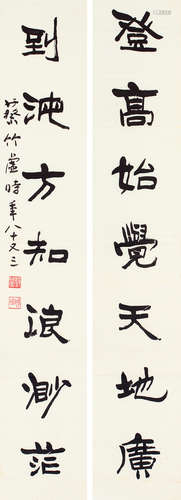 登高始覺天地廣
到海方知浪渺茫
蔡竹虛時年八十又三